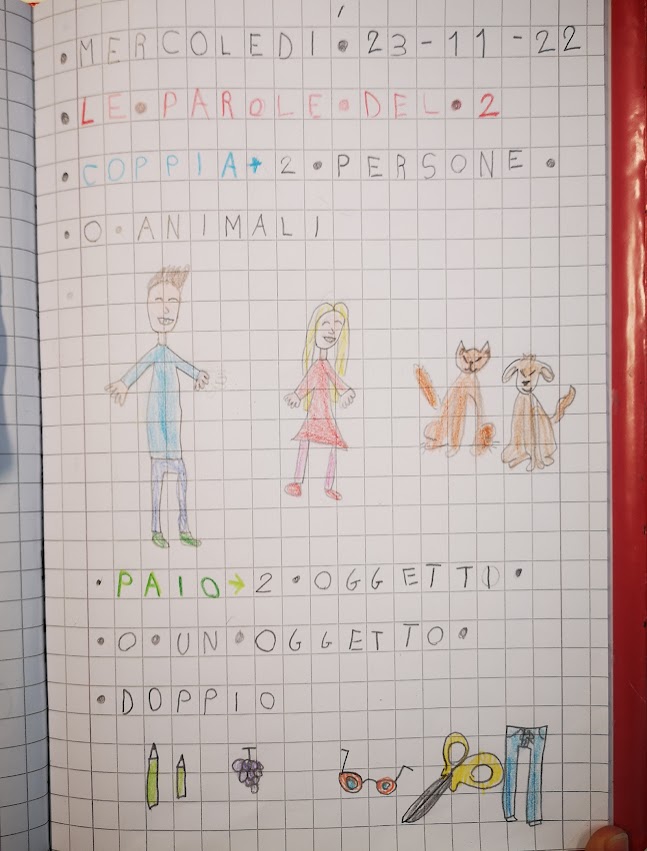 MERCOLEDÌ • 23-11-22
• LE • PAROLE • DEL • 2
• COPPIA → 2 • PERSONE •
• O • ANIMALI
• PAIO → 2 • OGGETTI •
• O • UN • OGGETTO •
• DOPPIO